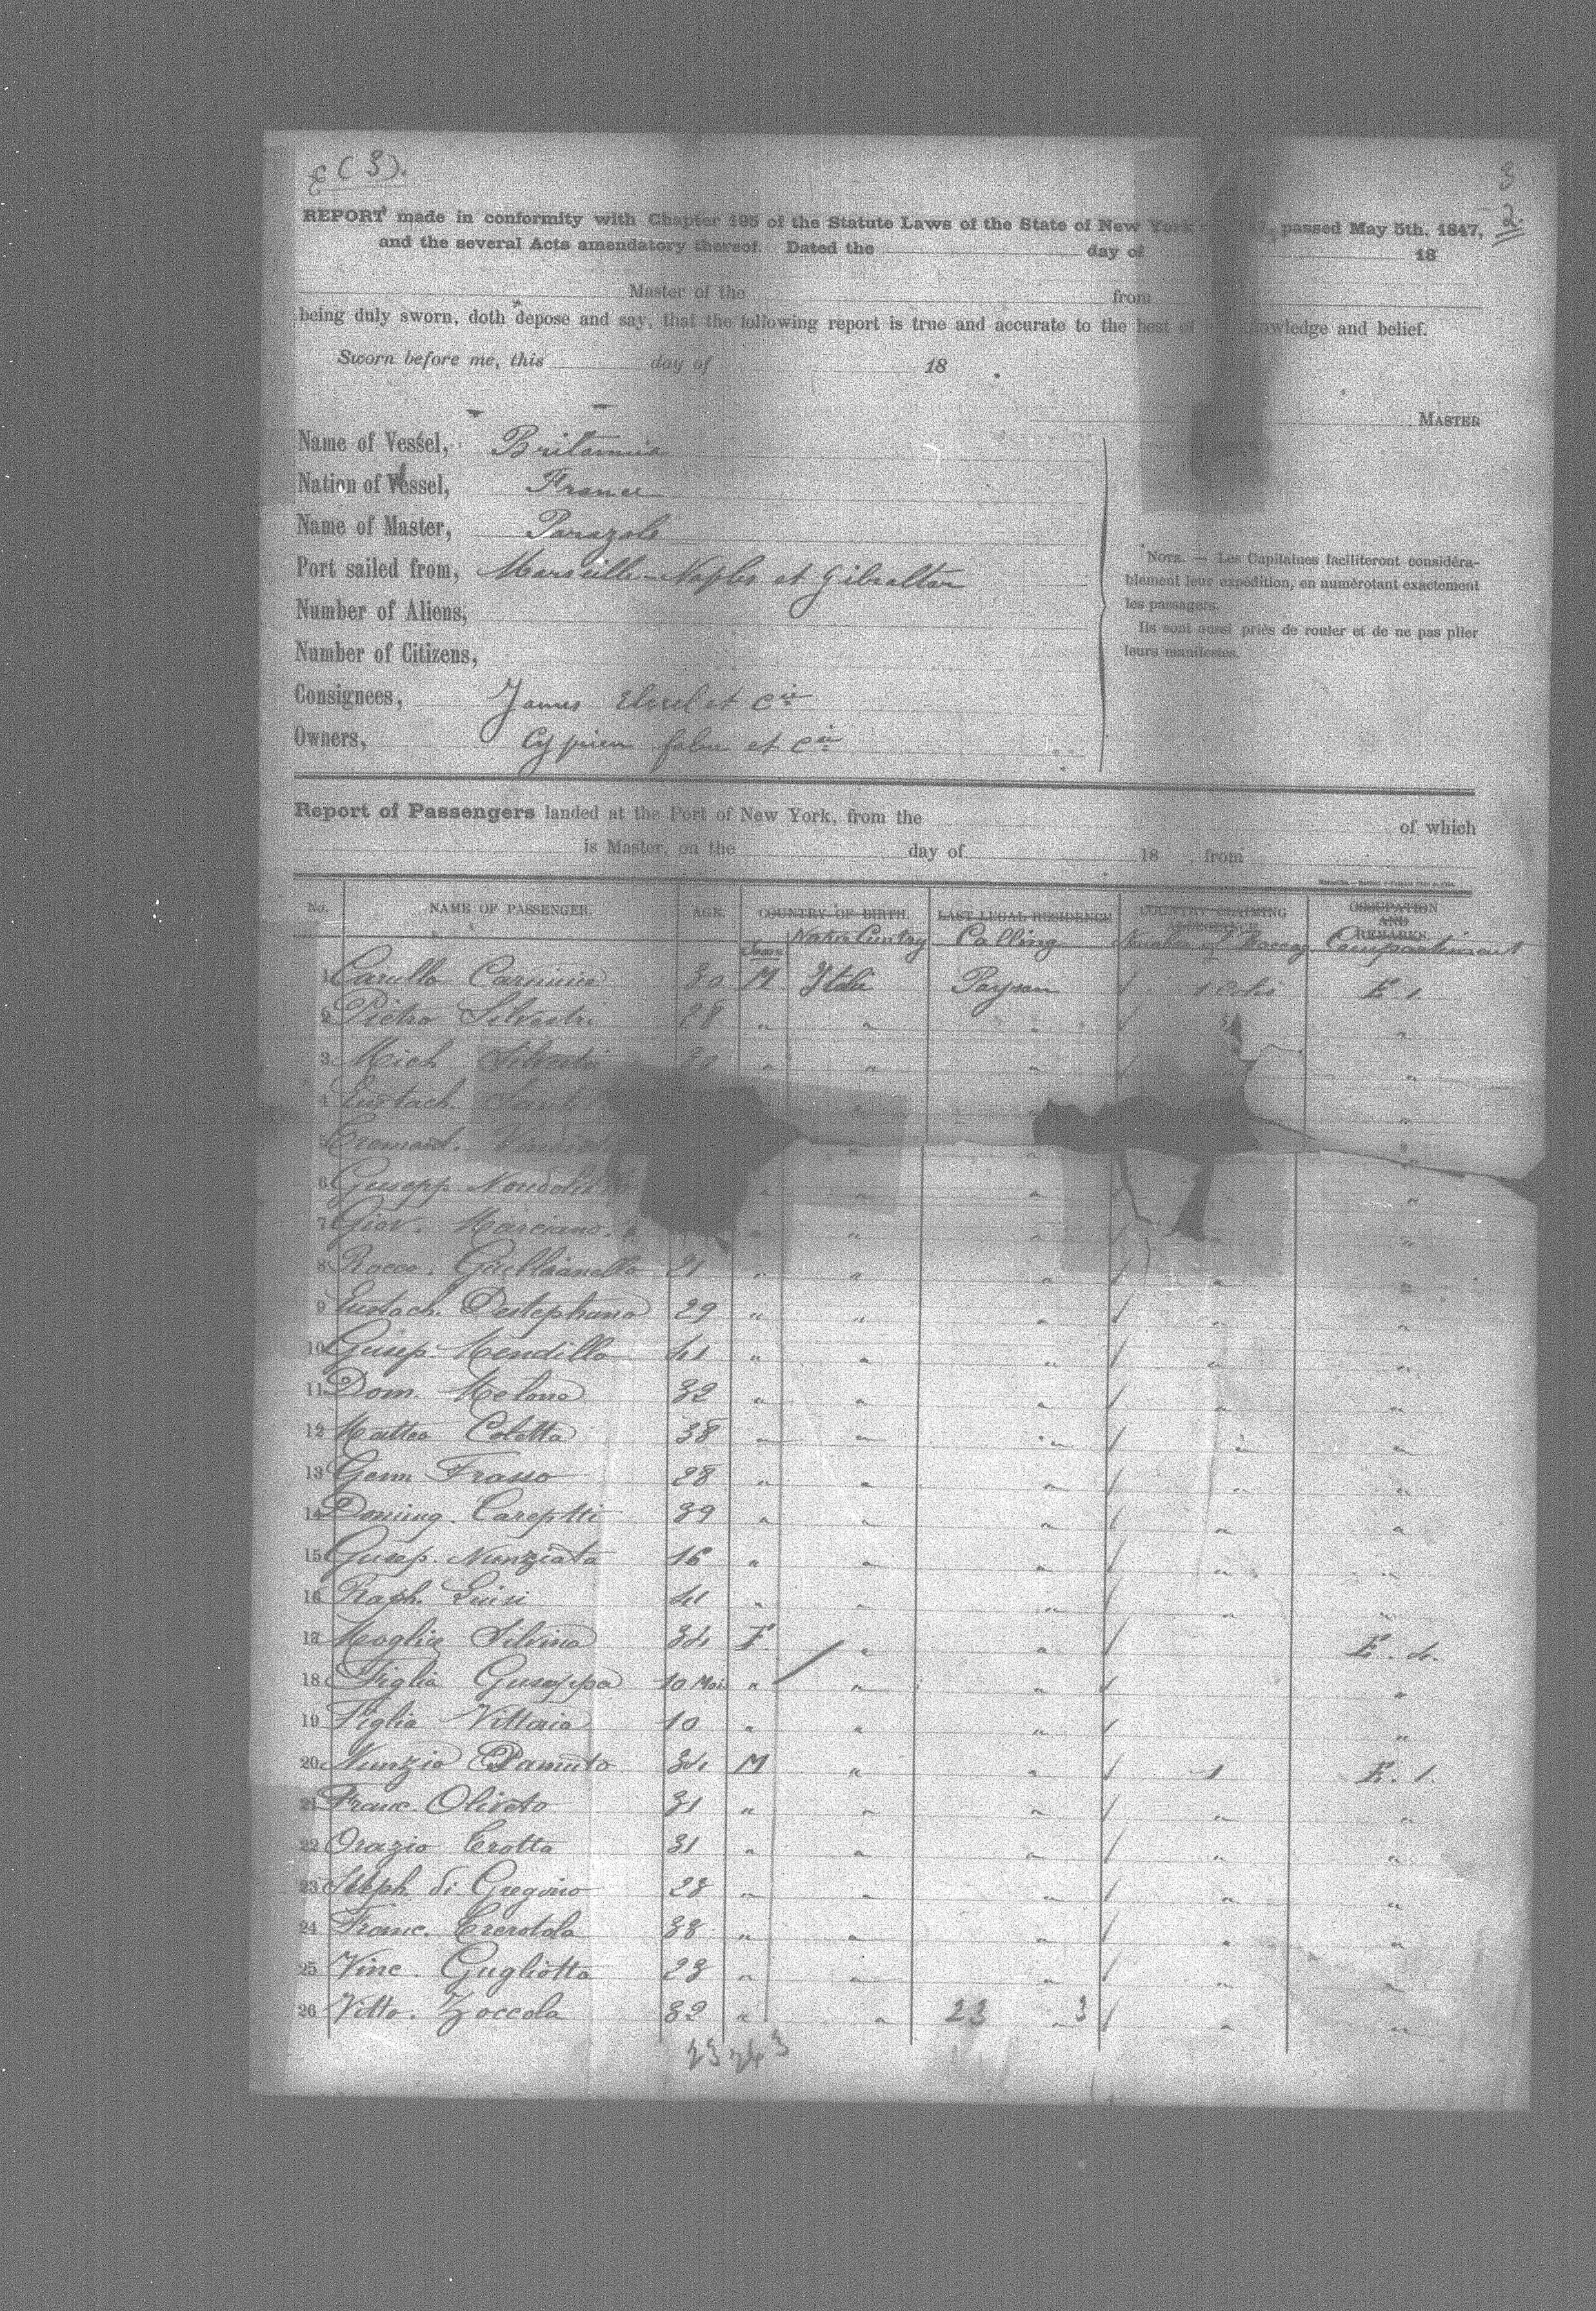 (3).
3
2.
REPORT made in conformity with Chapter 195 of the Statute Laws of the State of New York passed May 5th. 1847,
and the several Acts amendatory thereof. Dated the day of 18
Master of the from
being duly sworn, doth depose and say, that the following report is true and accurate to the best of knowledge and belief.
Sworn before me, this day of 18
MASTER
Name of Vessel, Britannia
Nation of Vessel, France
Name of Master,
Port sailed from, Marseille Naples et Gibraltar
Number of Aliens,
Number of Citizens,
Consignees, James et Cie
Owners, Cyprien Fabre et Cie
NOTE. — Les Capitaines faciliteront considéra-
blement leur expédition, en numérotant exactement
les passagers.
Ils sont aussi priés de rouler et de ne pas plier
leurs manifestes.
Report of Passengers landed at the Port of New York, from the of which
is Master, on the day of 18 , from
No. NAME OF PASSENGER. AGE. COUNTRY OF BIRTH. LAST LEGAL RESIDENCE COUNTRY CLAIMING ALLEGIANCE OCCUPATION AND REMARKS
Native Cuntry Calling Number of Compartiment
1 Carullo Carmine 30 M Italie Paysan E. 1
2 Pietro Silvestri 28 " " " "
3 Mich Silvestri 30 " " " "
4 Eustach. " " "
5 " " "
6 Giusepp. " " " "
7 Giov. Marciano " " " "
8 Rocco. 21 " " " " "
9 Eustach. Destephano 29 " " " " "
10 Giusep. Mendillo 41 " " " " "
11 Dom. Melone 32 " " " " "
12 Matteo Coletta 38 " " " " "
13 Genn Frasso 28 " " " " "
14 Doming. 39 " " " " "
15 Gusep. Nunziata 16 " " " " "
16 Raph. Luisi 41 " " " " "
17 Moglie Silvina 34 F " " E. 4.
18 Figlia Guseppa 10 Mois " " " "
19 Figlia Vittoria 10 " " " "
20 Nunzio 34 M " " 1 E. 1.
21 Franc. Oliveto 31 " " " " "
22 Orazio Crotta 31 " " " " "
23 Steph. di Gregorio 28 " " " " "
24 Franc. 38 " " " " "
25 Vinc. Gugliotta 28 " " " " "
26 Vitto. Zoccola 32 " " " " "
23 3
23 26 3